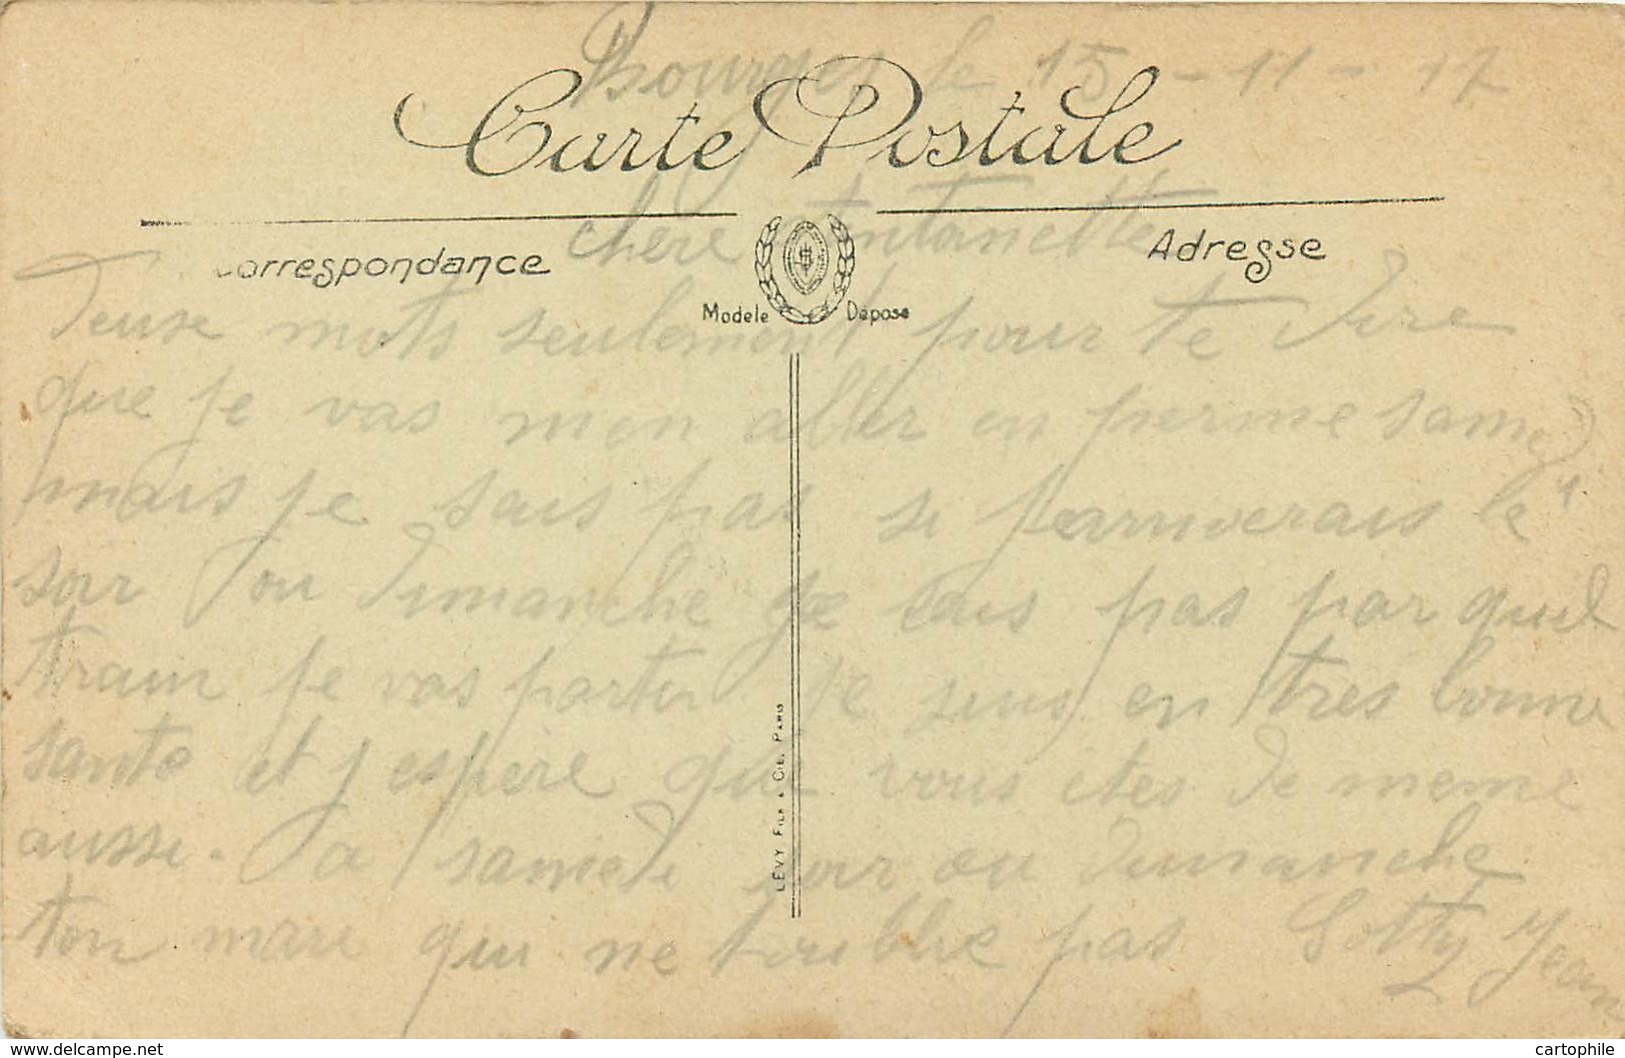 Bourges le 15 - 11 - 17
Carte Postale
chère Antoinette
Correspondance
Adresse
Modele Déposé
Deuse mots seulement pour te dire
que je vas men aller en perme samedi
mais je sais pas si j'arriverais le
soir ou dimanche je sais pas par quel
train je vas partir je suis en très bonne
santé et j espère que vous êtes de meme
aussi. a samedi soir ou dimanche
ton mari qui ne toublie pas Jean
LÉVY FILS & CIE, PARIS
www.delcampe.net
cartophile